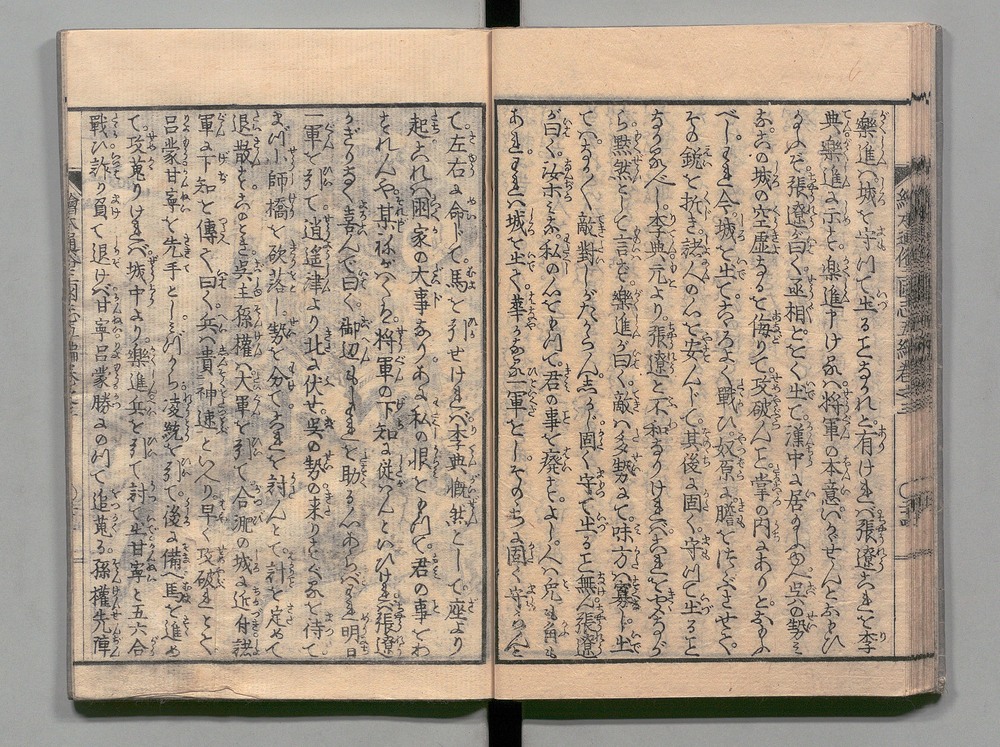 樂進ハ城を守りて出ることなかれと有けれバ張遼これを李
典樂進に示す樂進申けるハ将軍の本意いかゞせんとおもひ
給ふぞ張遼が曰く丞相とほく出て漢中に居玉ふゆへ呉の勢
この城の空虚なるを侮りて攻破んこと掌の内にありとおもふ
べしわれ今城を出てこゝろよく戦ひ奴原に膽をけしさせて
その鋭を折き諸人の心を安んじて其後に固く守りて出ること
なかるべし李典元より張遼と不和なりけれバこれをきゝなが
ら黙然として言ず樂進が曰く敵ハ多勢にて味方ハ寡し出
てハまさしく敵對しがたからん只固く守て出ること無れ張遼
が曰く汝ホミな私の心を以て君の事を廢すよし人ハ兎も角も
あれわれハ城を出て華かなる一軍をしてそのちに固く守らんと
て左右に命じて馬を引せけれバ李典慨然として座より
起これハ國家の大事なりあに私の恨をもつて君の事をわ
すれんや某ねがハくハ将軍の下知に従ハんといひけれバ張遼
かぎりなく喜んで曰く御辺もしわれを助る心あらバわれ明日
一軍を引て逍遥津より北に伏せ呉の勢の来りすぐるを待て
まづ小師橋を砍落し勢を分てこれを討んとて計を定めて
退散すこのとき呉主孫權ハ大軍を引て合淝の城に近付諸
軍に下知を傳へて曰く兵ハ貴神速といへり早く攻破れとて
呂蒙甘寧を先手としミづから凌統を引て後に備へ馬を進め
て攻蒐りけれバ城中より樂進兵を引て討て出甘寧と五六合
戦ひ詐り負て退けバ甘寧呂蒙勝にのりて追蒐る孫權先陣